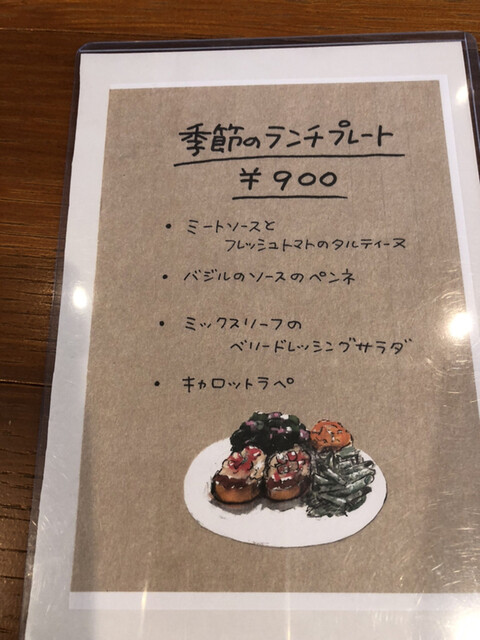 季節のランチプレート
¥900
• ミートソースと
フレッシュトマトのタルティーヌ
• バジルのソースのペンネ
• ミックスリーフの
ベリードレッシングサラダ
• キャロットラペ